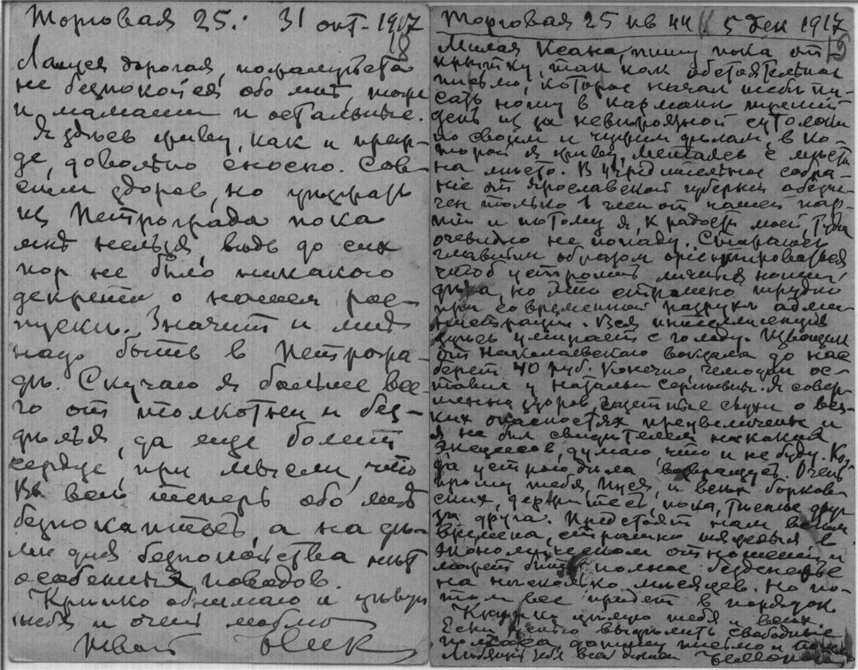 Торговая 25. 31 окт. 1917
дорогая, пожалуйста
не безпокойся обо мнѣ, тоже
и мамаша и остальные.
Я здѣсь живу, какъ и преж-
де, довольно сносно. Сов-
сем здоров, но
из Петрограда пока
мнѣ нельзя, ведь до сих
пор не было никакого
декрета о нашем рос-
пуске. Значит и мнѣ
надо быть в Петрогра-
дѣ. Скучаю я болѣе все-
го от толкотни и без-
дѣлья, да еще болит
сердце при мысли, что
Вы всѣ теперь обо мнѣ
безпокоитесь, а на дѣ-
лѣ для безпокойства нѣт
особенных поводов.
Крѣпко обнимаю и цѣлую
тебя и очень люблю
Твой Ник
Торговая 25 кв 44 5 дек 1917
Милая Ксана, пишу пока от-
крытку, так как обстоятельное
письмо, которое начал тебѣ пи-
сать, ношу в карманѣ третий
день из за невѣроятной сутолоки
по своим и чужим дѣлам, в ко-
торой я живу, метаясь с мѣста
на мѣсто. В Учредительное собра-
ние от Ярославской губернии обезпе-
чен только 1 член от нашей пар-
тии и потому я, к радости моей, туда
очевидно не попаду. Стараюсь
главным образом ориентироваться
чтоб устроить личные наши
дѣла, но это страшно трудно
при современной разрухѣ адми-
нистрации. Вся интеллигенция
здѣсь умирает с голоду. Извощик
от Николаевского вокзала до нас
берет 40 руб. Конечно, чемодан ос-
тавил у Натальи Сергѣевны. Я совер-
шенно здоров. Газетные слухи о вся-
ких опасностях преувеличены и
я не был свидѣтелем никаких
эксцессов, думаю что и не буду. Ког-
да устрою дѣла, возвращусь. Очень
прошу тебя, и всѣх борков-
ских, держитесь, пока, тѣснѣе друг
за друга. Предстоят нам
времена, страшно тяжелые в
экономическом отношении и
может быть полное безденежье
на нѣсколько мѣсяцев. Но по-
том все придет в порядок
цѣлую тебя и всѣх.
Если
письмо и
Любящий тебя